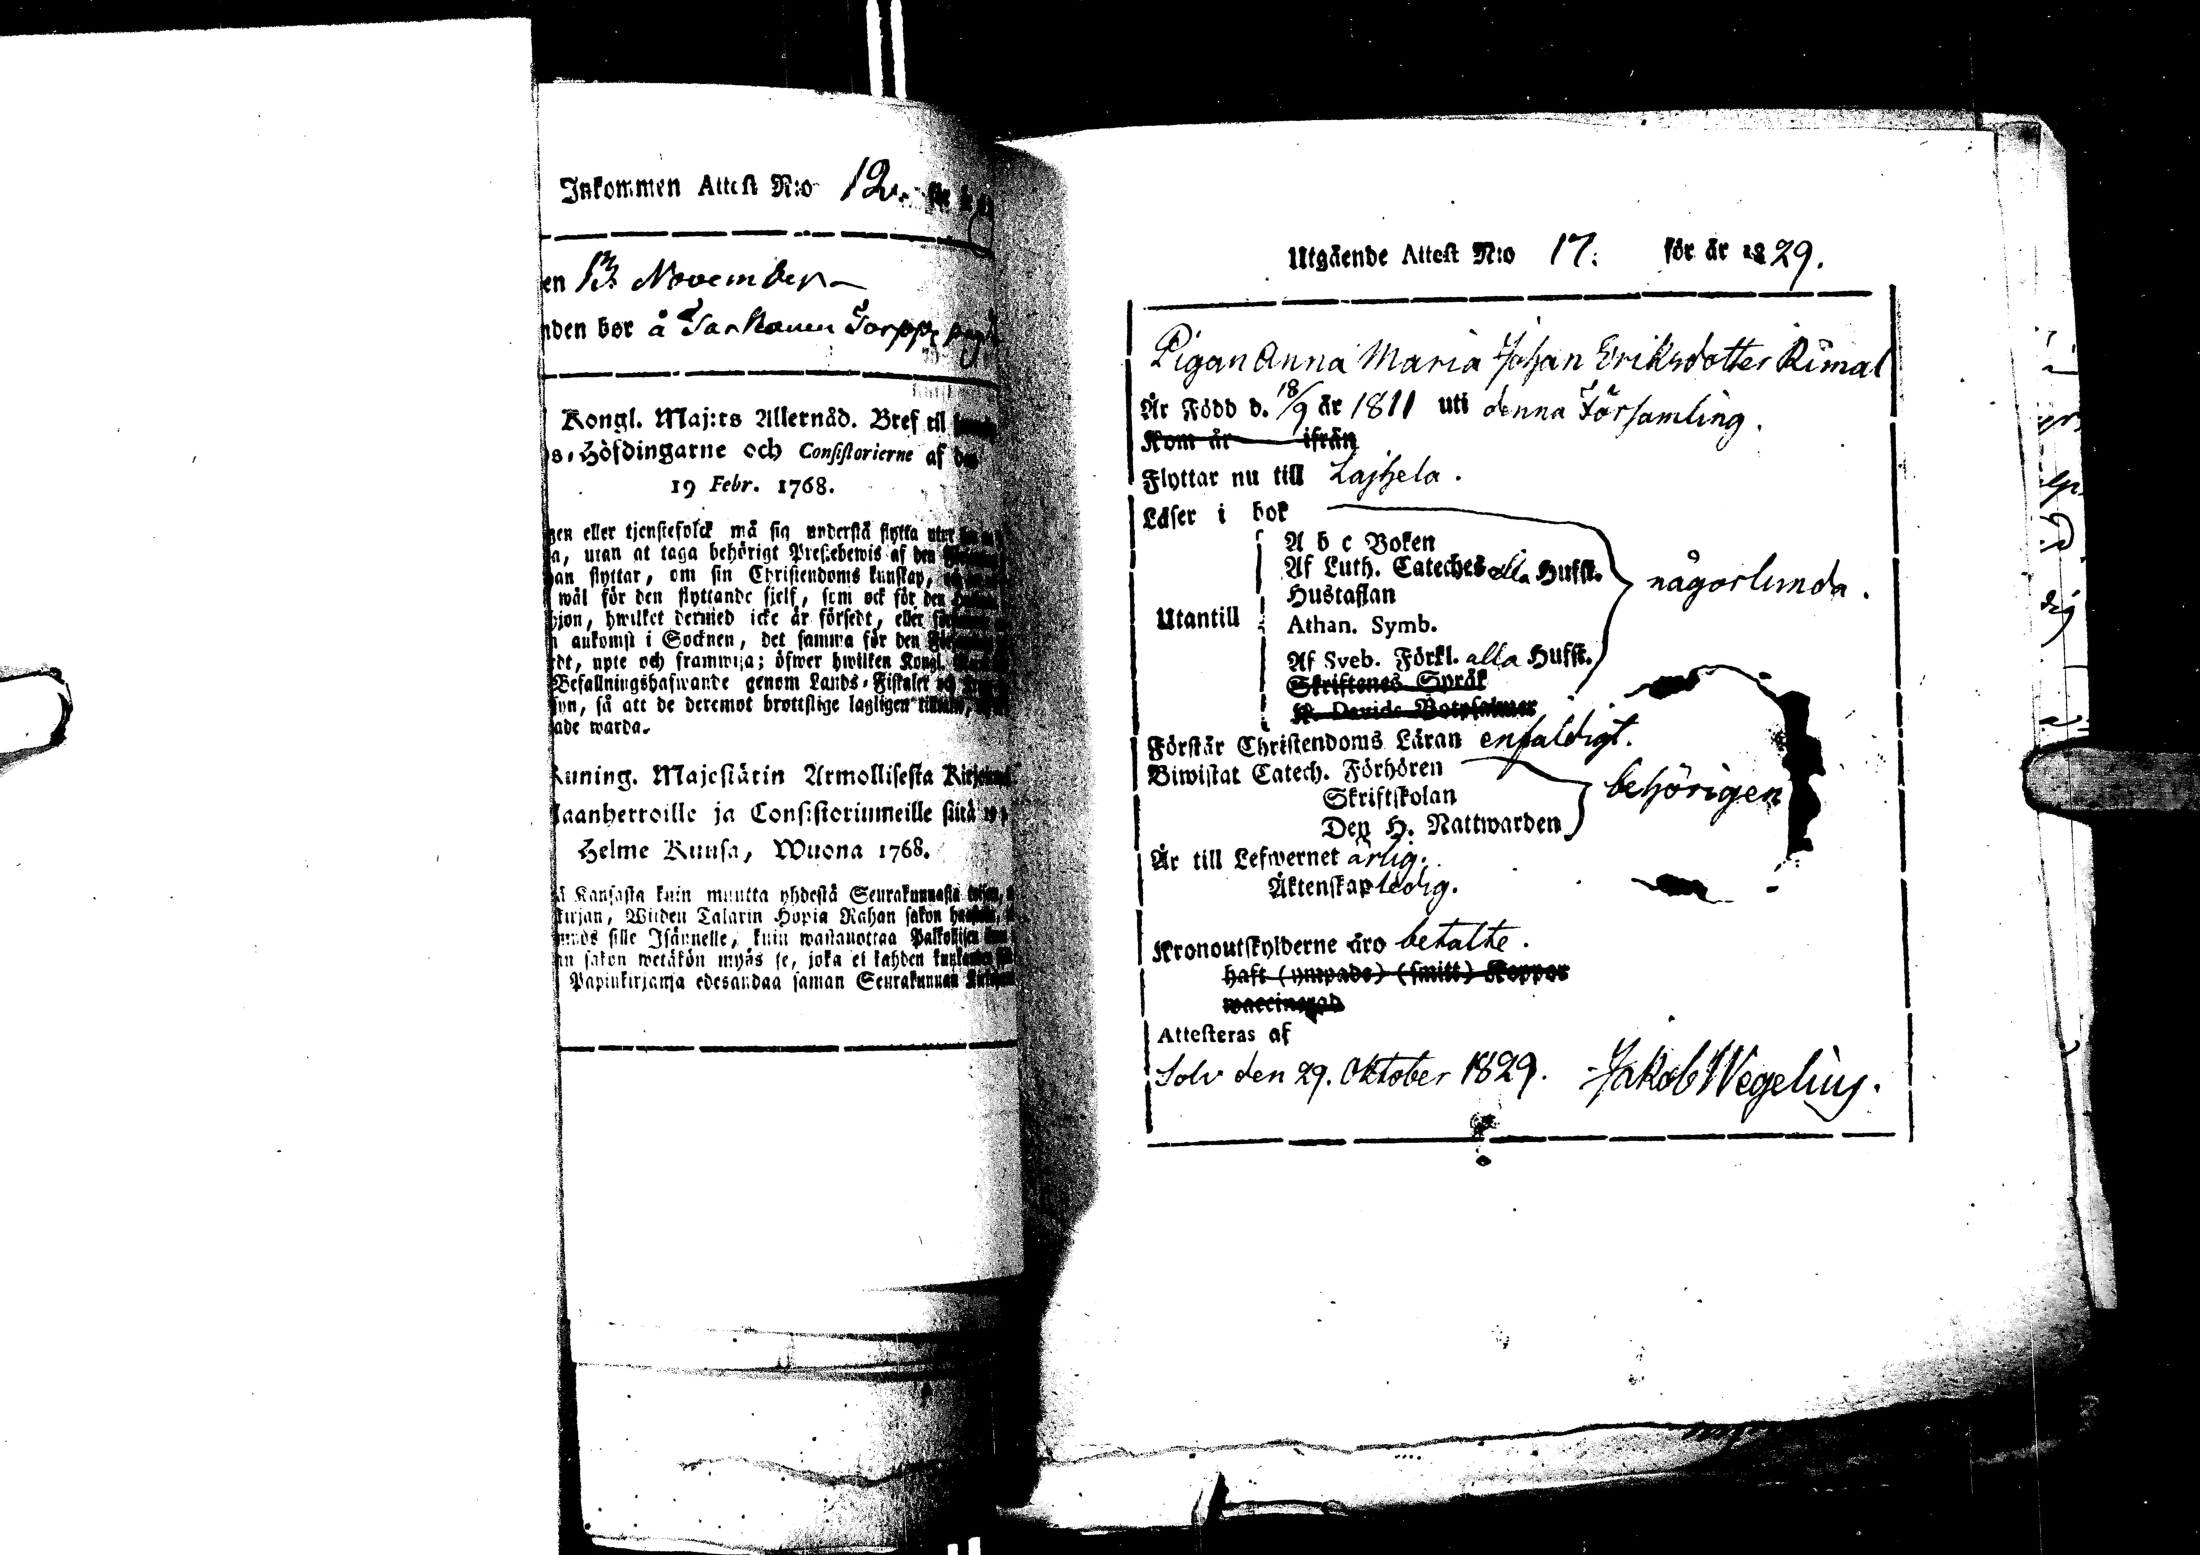 Inkommen Attest N:o 12.
en 13 November
nden bor å Tarkanen Torppe
Kongl. Maj:ts Allernåd. Bref til
s-Höfdingarne och Consistorierne af
19 Febr. 1768.
gen eller tjenstefolck må sig understå flytta utur
a, utan at taga behörigt Prestebewis af den
an flyttar, om sin Christendoms kunskap,
wäl för den flyttande sjelf, som ock för den
jon, hwilket dermed icke är försedt, eller
ankomst i Socknen, det samma för den
edt, upte och framwisa; öfwer hwilken Kongl.
Befallningshafwande genom Lands-Fiskaler och
yn, så att de deremot brottslige lagligen
ade warda.
Kuning. Majestätin Armollisesta
Maanherroille ja Consistoriumeille siitä 19
Helme Kuusa, Wuona 1768.
ä Kansasta kuin muutta yhdestä Seurakunnasta
kirjan, Wiiden Talarin Hopia Rahan sakon
sille Isännelle, kuin wastanottaa
sakon wetäkön myös se, joka ei kahden
Papinkirjansa edesandaa saman Seurakunnan
Utgående Attest N:o 17. för år 1829.
Pigan Anna Maria Johan Eriksdotter Rimal
Är Född d. 18/9 år 1811 uti denna Församling.
Kom år ifrån
Flyttar nu till Lajhela.
Läser i bok
A b c Boken
Af Luth. Cateches alla Hufst.
Hustaflan
någorlunda.
Utantill
Athan. Symb.
Af Sveb. Förkl. alla Hufst.
Skriftenes Språk
K. Davids Botpsalmer
Förstår Christendoms Läran enfaldigt.
Biwistat Catech. Förhören
Skriftskolan
behörigen
Den H. Nattwarden
Är till Lefwernet ärlig.
Äktenskap ledig.
Kronoutskylderne äro betalte.
haft (ympade) (smitt) Koppor
waccinerad
Attesteras af
Solv den 29. Oktober 1829. Jakob Wegelius.